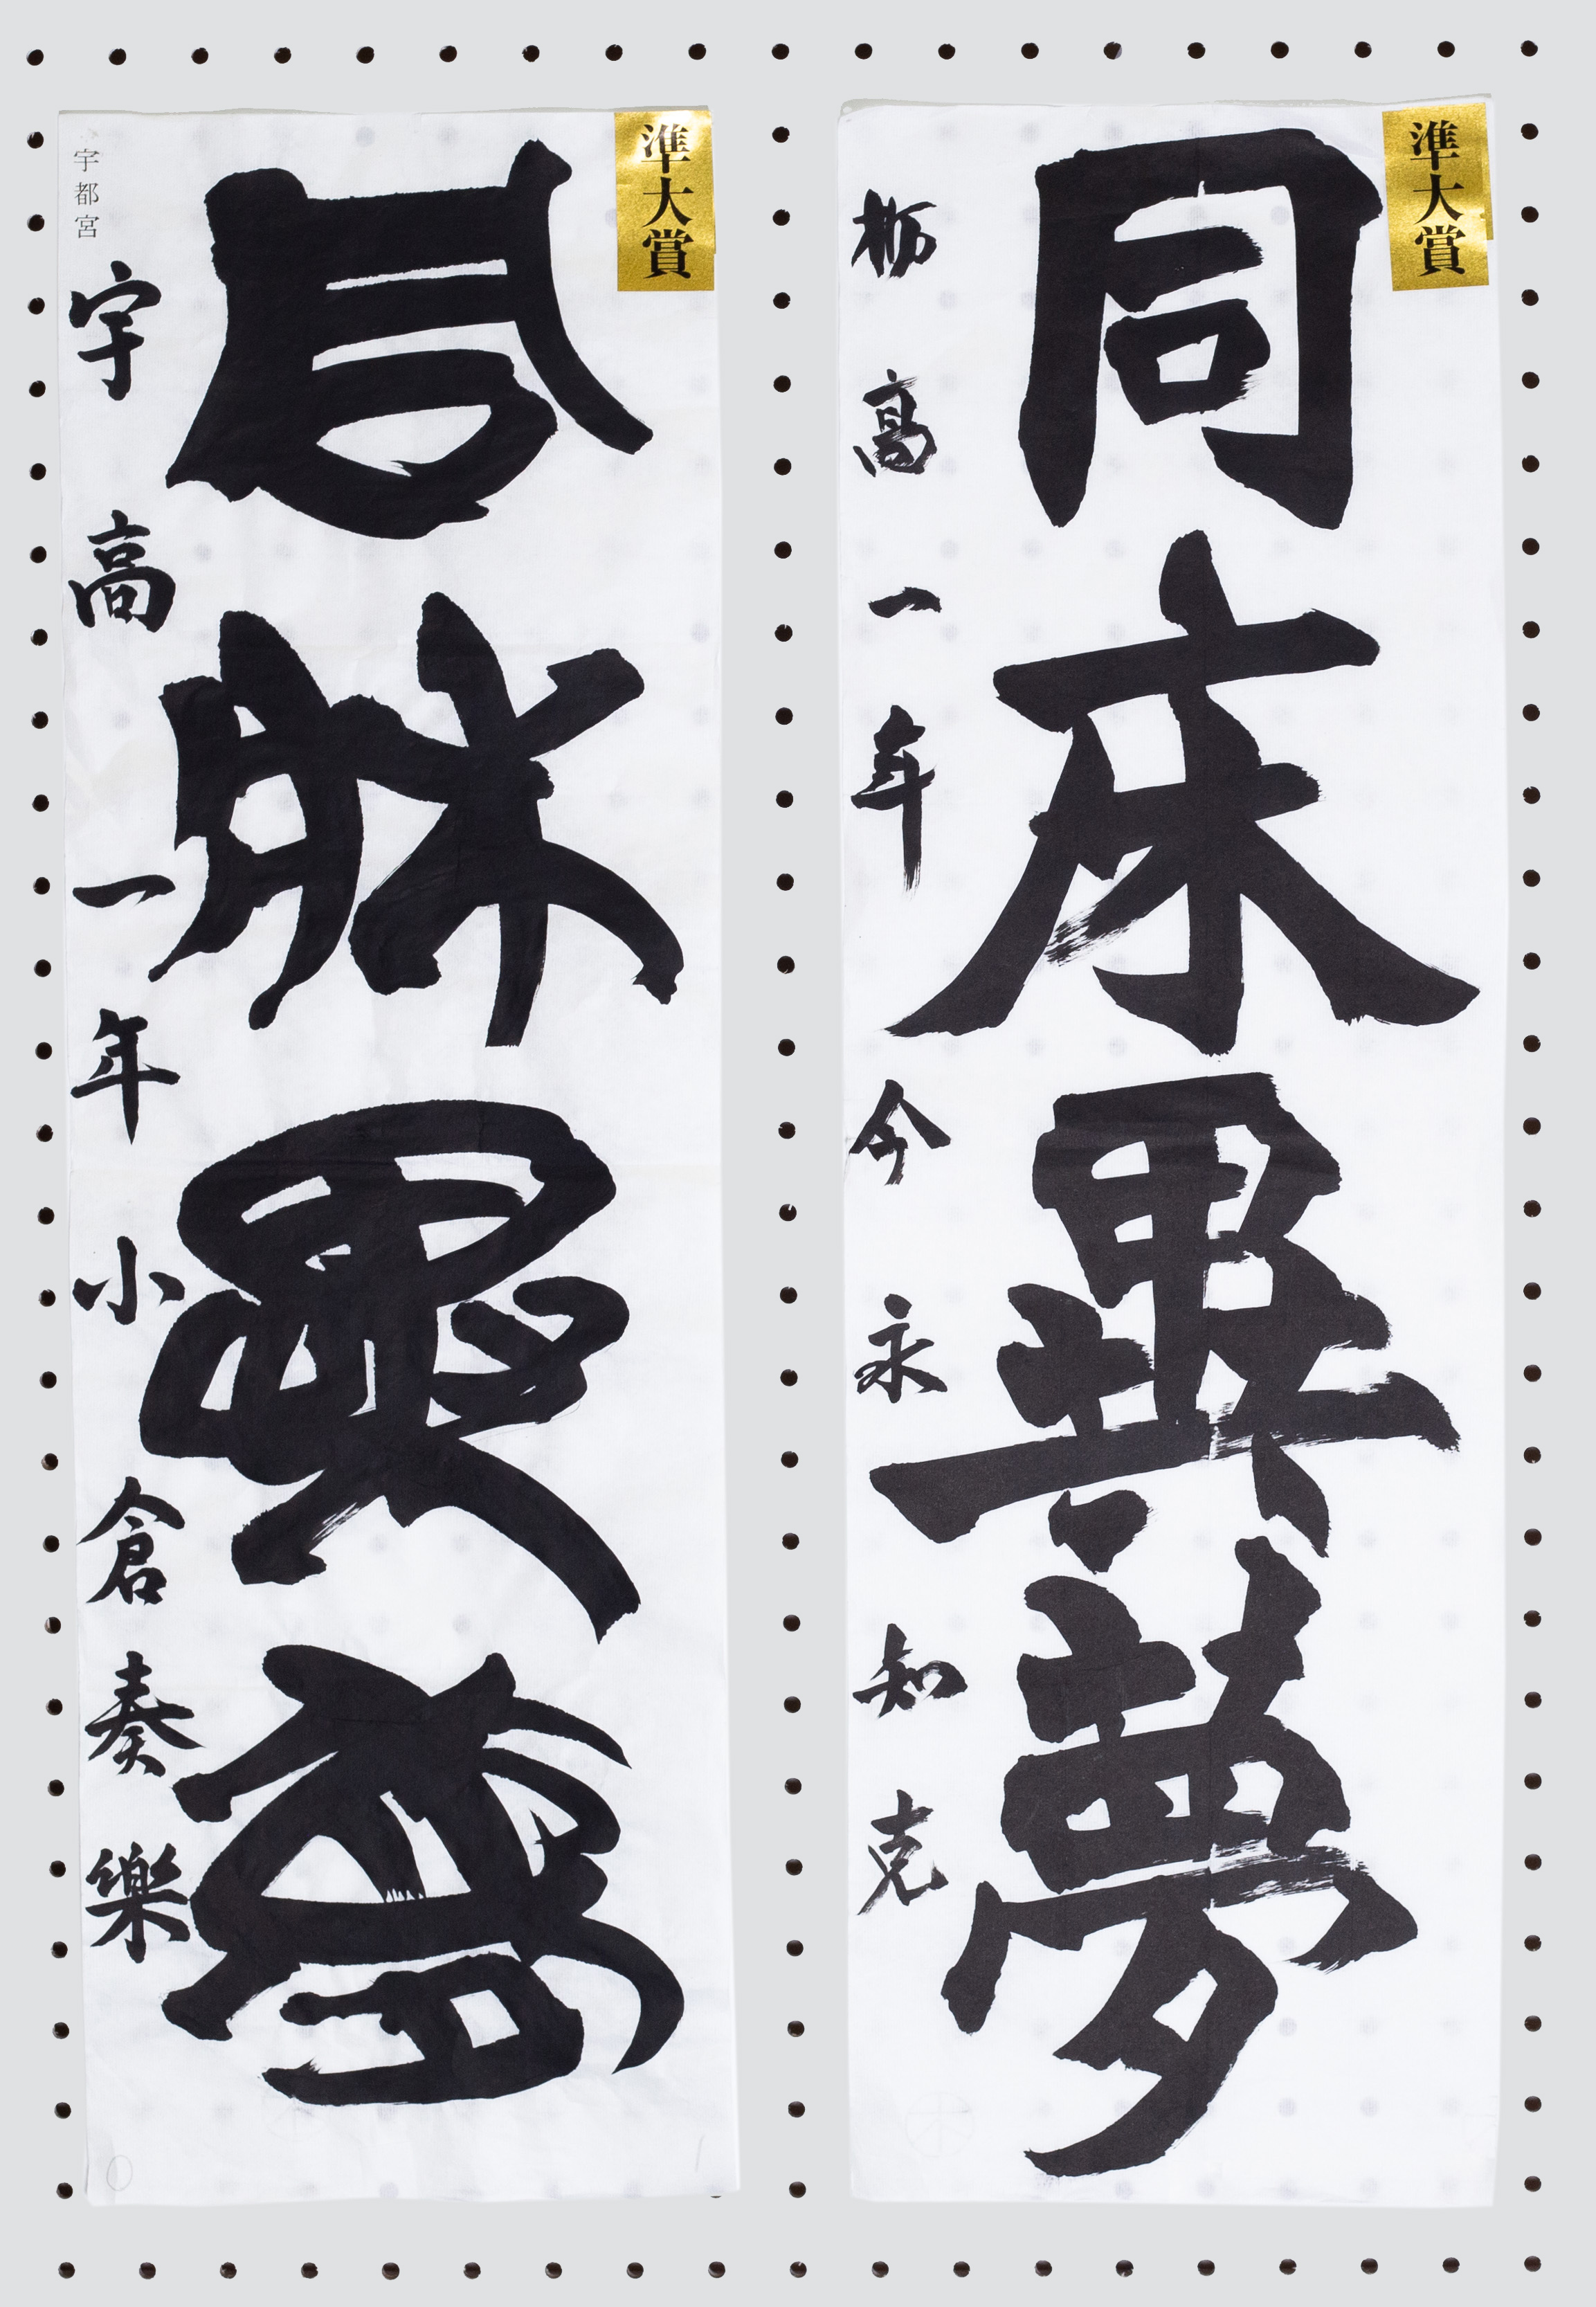 準大賞
同床異夢
栃高一年今永知克
準大賞
同牀異夢
宇都宮
宇高一年小倉奏樂